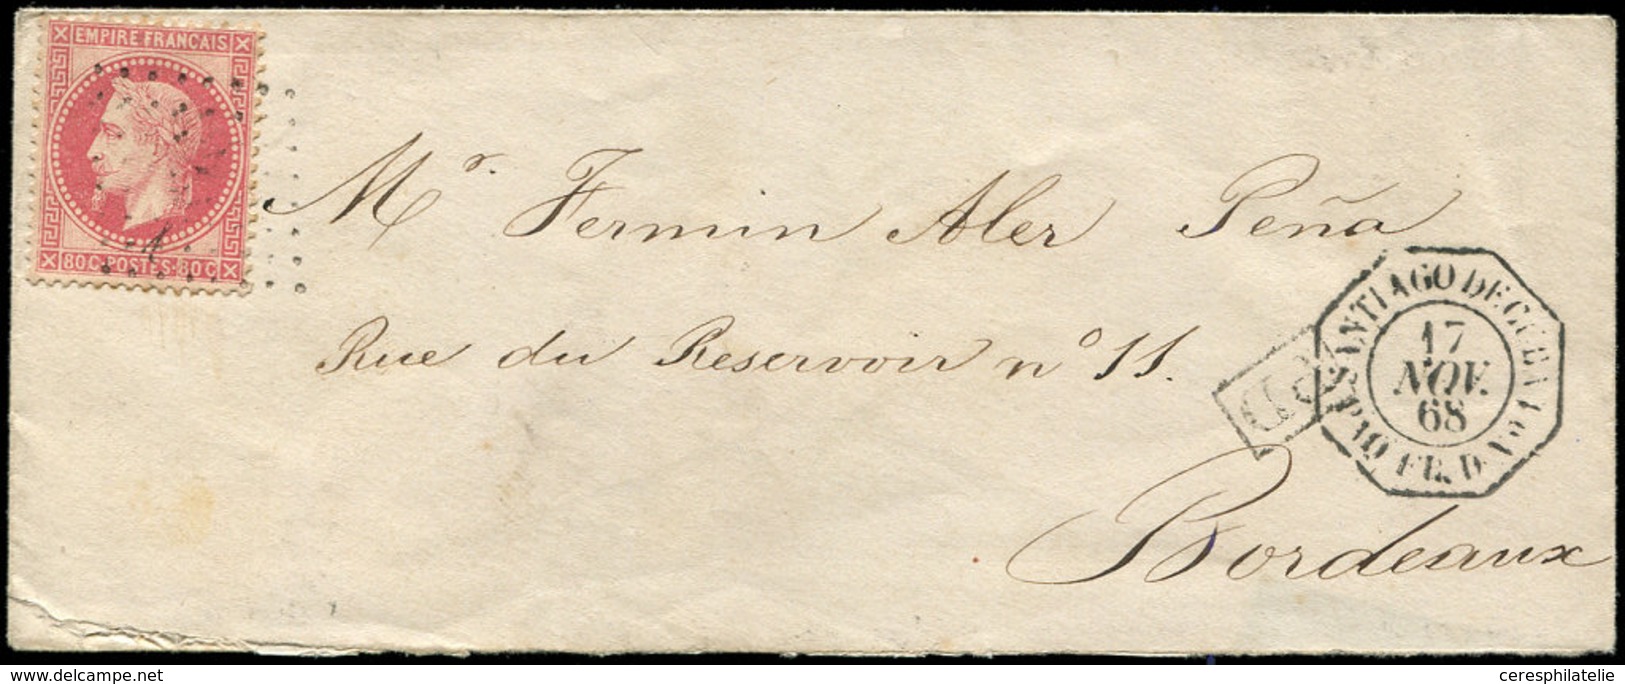 EMPIRE FRANCAIS
80C·POSTES·80C
Mr. Fermin Aler Peña
Rue du Reservoir nº 11.
Bordeaux
PD
SANTIAGO DE CUBA
17
NOV.
68
PAQ. FR. D Nº1
ceresphilatelie